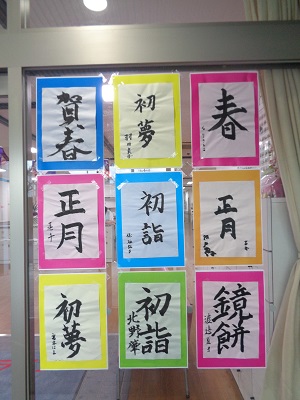 賀春
初夢
春
正月
初詣
正月
初夢
初詣
北野肇
鏡餅